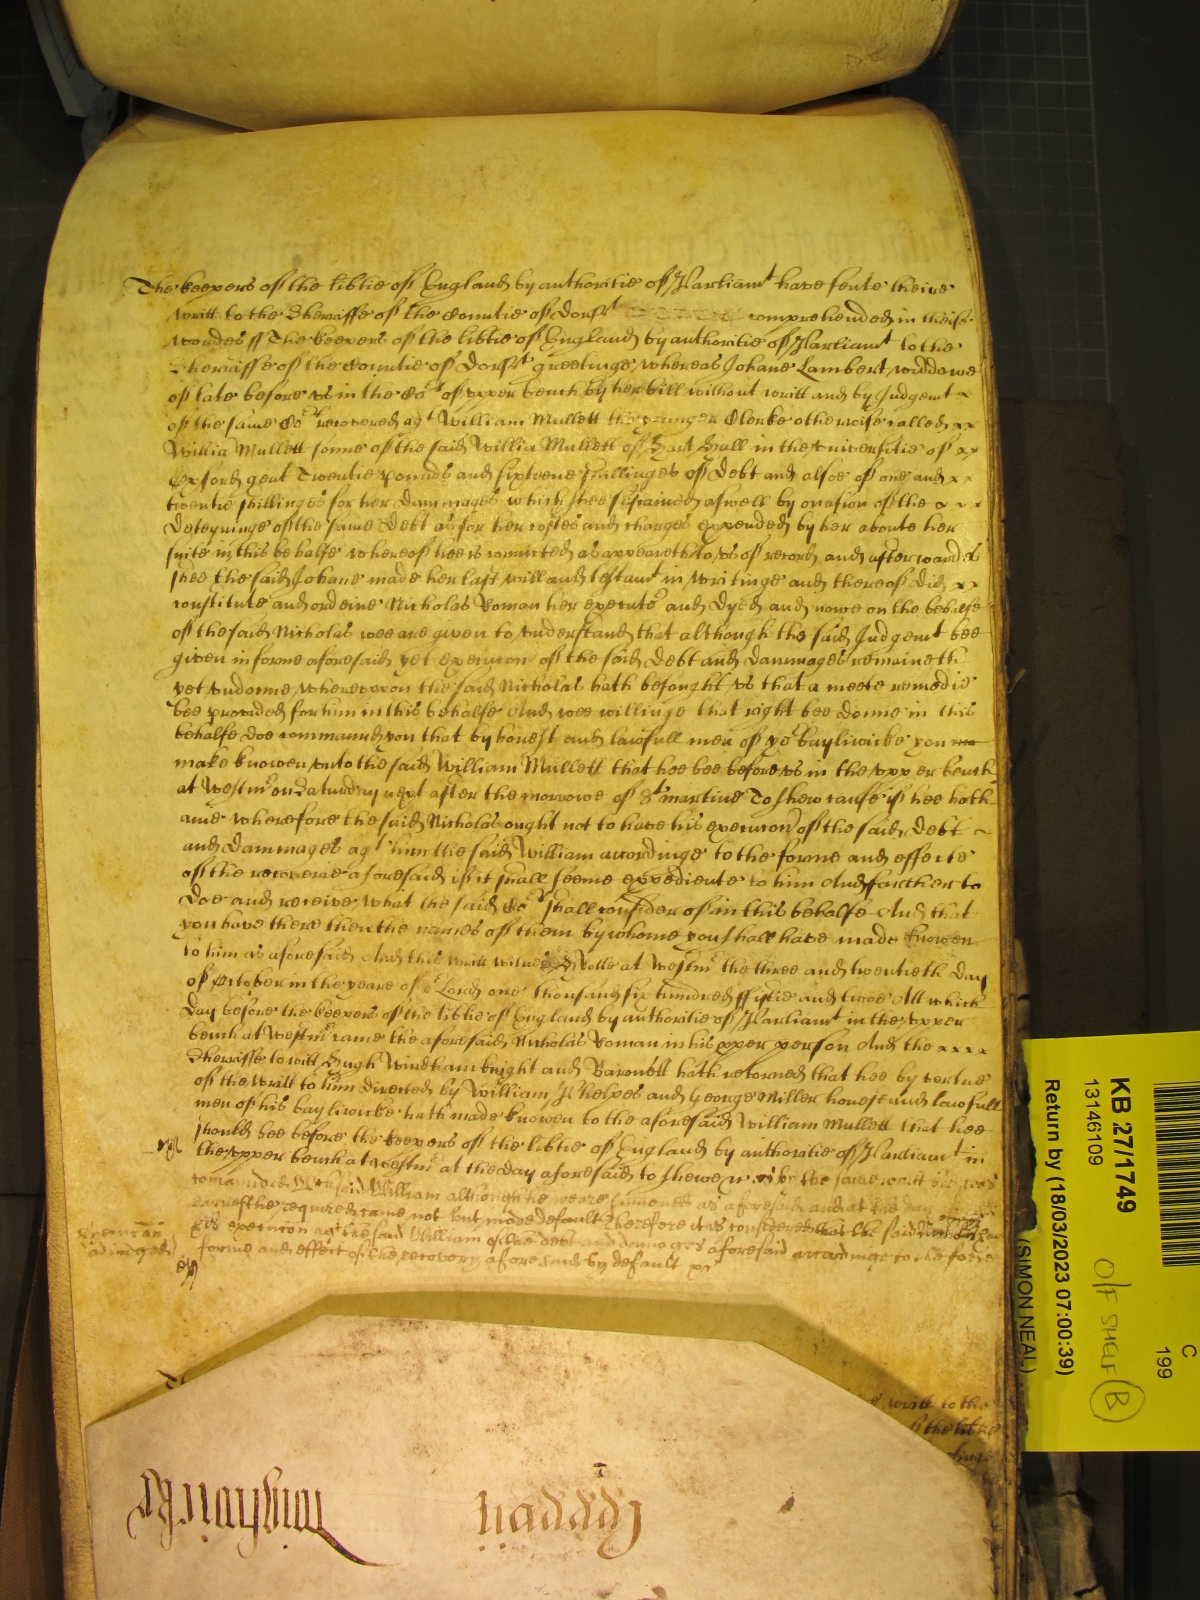 The keepers of the libtie of England by authoritie of Parliamt have sente theire
writt to the Sherriffe of the Countie of Dorst comprehended in theise
wordes ss The keepers of the libtie of England by authoritie of Parliamt to the
Sherriffe of the Countie of Dorst greetinge whereas Johane Lambert widdowe
of late before us in the Cot of upper bench by her bill without writt and by Judgemt
of the same Cot recovered agt William Mullett the younger Clerke otherwise called xx
Willia Mullett sonne of the said Willia Mullett of Hart Hall in the universitie of xx
Oxford gent Twentie pounds and sixteene shillinges of Debt and alsoe of one and xx
twentie shillinges for her dammages which shee susteined aswell by occasion of the x x x
deteyninge of the same Debt as for her costes and charges expended by her aboute her
suite in this behalfe whereof hee is convicted as appeareth to us of record and afterwardes
shee the said Johane made her last will and testamt in writinge and thereof did xx
constitute and ordeine Nicholas Roman her executor and dyed and nowe on the behalfe
of the said Nicholas wee are given to understand that although the said Judgemt bee
given in forme aforesaid yet execucon of the said Debt and dammages remaineth
yet undonne whereuppon the said Nicholas hath besought us that a meete remedie
bee provided for him in this behalfe And wee willinge that right bee donne in this
behalfe doe command you that by honest and lawfull men of yor bayliwicke you
make knowen unto the said William Mullett that hee bee before us in the upper bench
at Westmr on Saturday next after the morrowe of St martine To shew cause if hee hath
anie wherefore the said Nicholas ought not to have his execucon of the said Debt
and dammages agt him the said William accordinge to the forme and effecte
of the recoverie aforesaid if it shall seeme expediente to him And farther to
doe and receive what the said Cot shall consider of in this behalfe And that
you have there then the names of them by whome you shall have made knowen
to him as aforesaid And this writt witnes Rolle at Westmr the three and twentieth day
of October in the yeare of or Lord one thousand six hundred fiftie and twoe Att which
day before the keepers of the libtie of England by authoritie of Parliamt in the upper
bench at Westmr came the aforesaid Nicholas Roman in his pper person And the xxxx
Sherriffe to witt Hugh Windham knight and Baronett hath retorned that hee by vertue
of the writt to him directed by William Phelpes and George Miller honest and lawfull
men of his bayliwicke hath made knowen to the aforesaid William Mullett that hee
should bee before the keepers of the libtie of England by authoritie of Parliamt in
the upper bench at Westmr at the day aforesaid to shewe as by the same writt was
comanded the said William although he weare sumoned as aforesaid and at the day
earnestlie required came not but made default Therefore it is considered that the said Nicholas have
his execucon agt the said William of the debt and damages aforesaid accordinge to the force
forme and effect of the recovery aforesaid by default &c
Execucon
adiudged
writt to the
the libtie
Warwicke
KB 27/1749
13146109
Return by (18/03/2023 07:00:39)
(SIMON NEAL)
O/F SHELF B
C
199